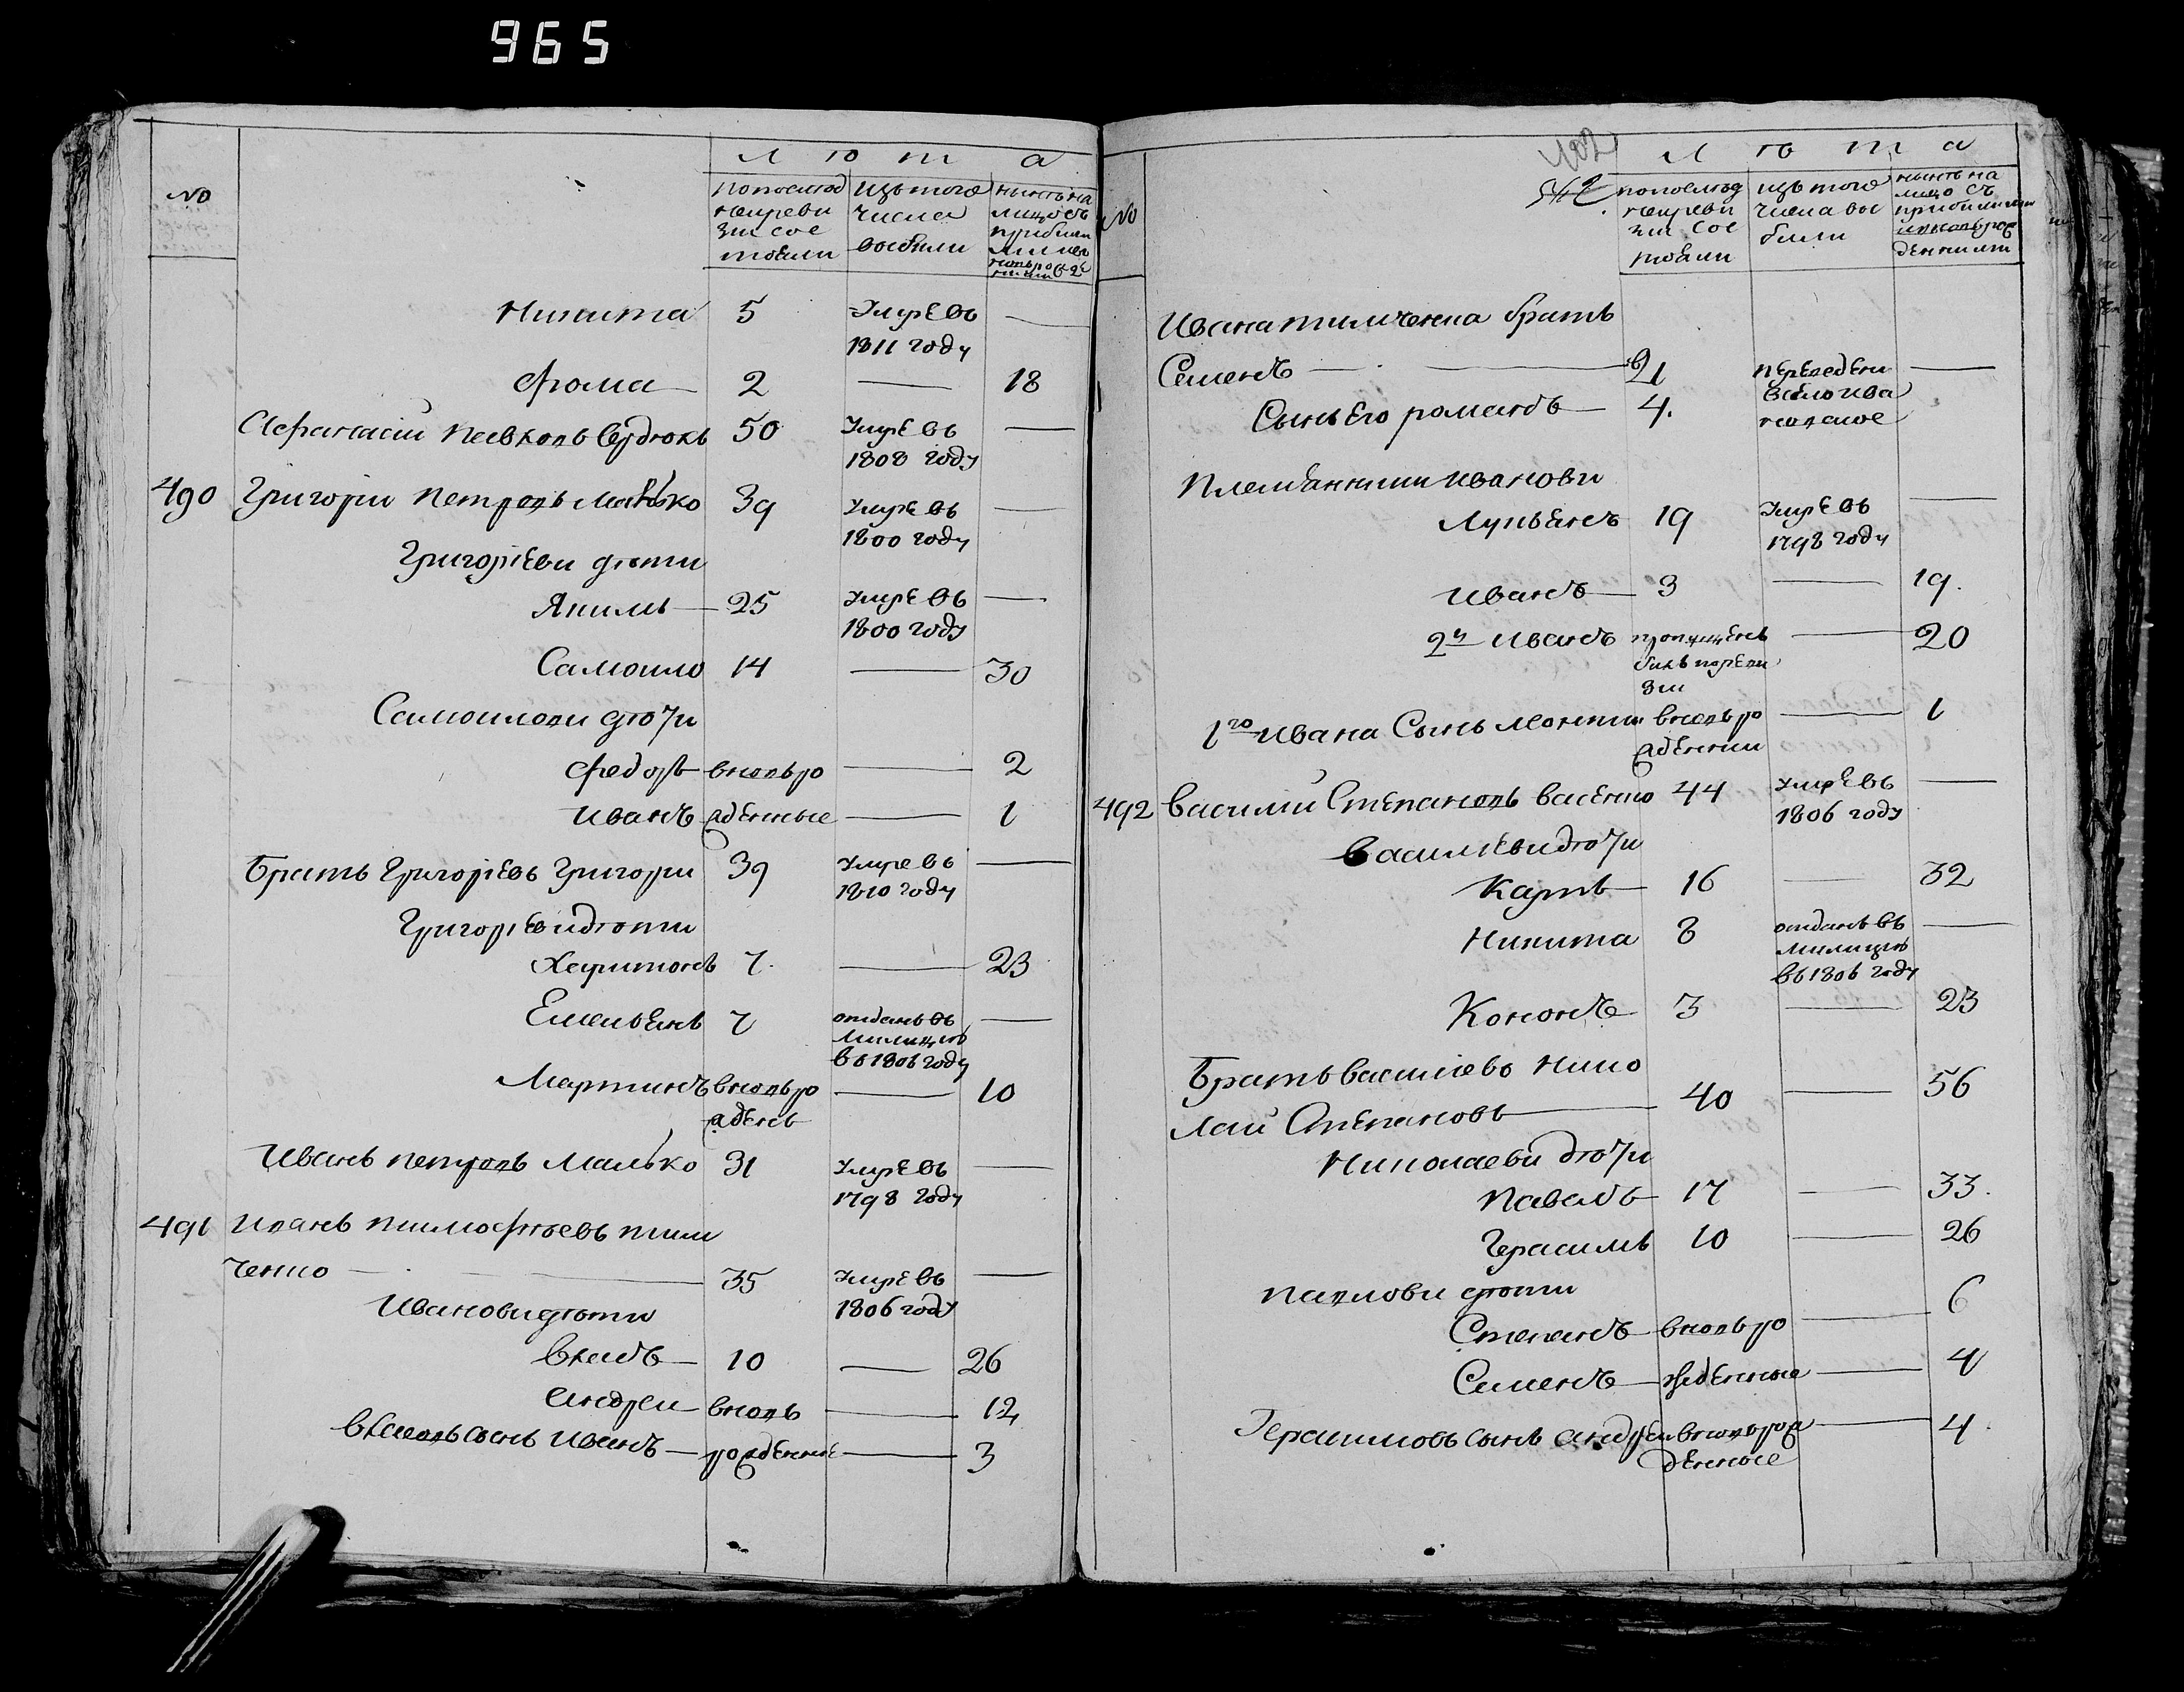 965
Л ѣ т а
№
попослѣд
ней реви
зiи сос
тояли
изъ того
числа
выбыли
нынѣ на
лицо съ
Никита 5 Умре въ —
1811 году
Фома — 2 — 18
Афанасiй Павловъ Сердюкъ 50 Умре въ —
1808 году
490 Григорiи Петровъ Малько 39 Умре въ —
1800 году
Григорiеви дѣти
Якимъ — 25 Умре въ —
1800 году
Самоило 14 — 30
Самоилови дѣти
Федоръ вновь ро — 2
Иванъ жденные — 1
Братъ Григорiевъ Григори 39 Умре въ —
1810 году
Григорiеви дѣти
Харитонъ 7. — 23
Емельянъ 7 отданъ въ —
милицiю
въ 1806 году
Мартинъ вновь ро — 10
жденъ
Иванъ Петровъ Малько 31 Умре въ —
1798 году
491 Иванъ Тимофѣевъ Тим
ченко — 35 Умре въ —
1806 году
Иванови дѣти
Власъ — 10 — 26
Андреи вновь — 12
Власовъ сынъ Иванъ — рожденные — 3
402
542
Л ѣ т а
№
попослѣд
ней реви
зiи сос
тояли
изъ того
числа вы
были
нынѣ на
лицо съ
прибылыми
и вновь рож
денними
Ивана Тимченка братъ
Семенъ — 21 переведени —
Сынъ Его романъ — 4.
въ село Ива
новское
Племянники Иванови
Лукьянъ 19 Умре въ —
1798 году
Иванъ — 3 — 19.
2й Иванъ пропущенъ — 20
билъ по реви
зiи
1го Ивана Сынъ Леонтiи вновь ро — 1
жденнии
492 Василiй Степановъ Васенко 44 Умре въ —
1806 году
Василiеви дѣти
Карпъ — 16 — 32
Никита 8 отданъ въ —
милицiю
въ 1806 году
Кононъ 3 — 23
Братъ Василiевъ Нико
лай Степановъ — 40 — 56
Николаеви дѣти
Павелъ — 17 — 33.
Герасимъ 10 — 26
Павлови дѣти
Степанъ — вновь ро — 6
Семенъ — жденные — 4
Герасимовъ сынъ Андреи вновь рож — 4.
денные